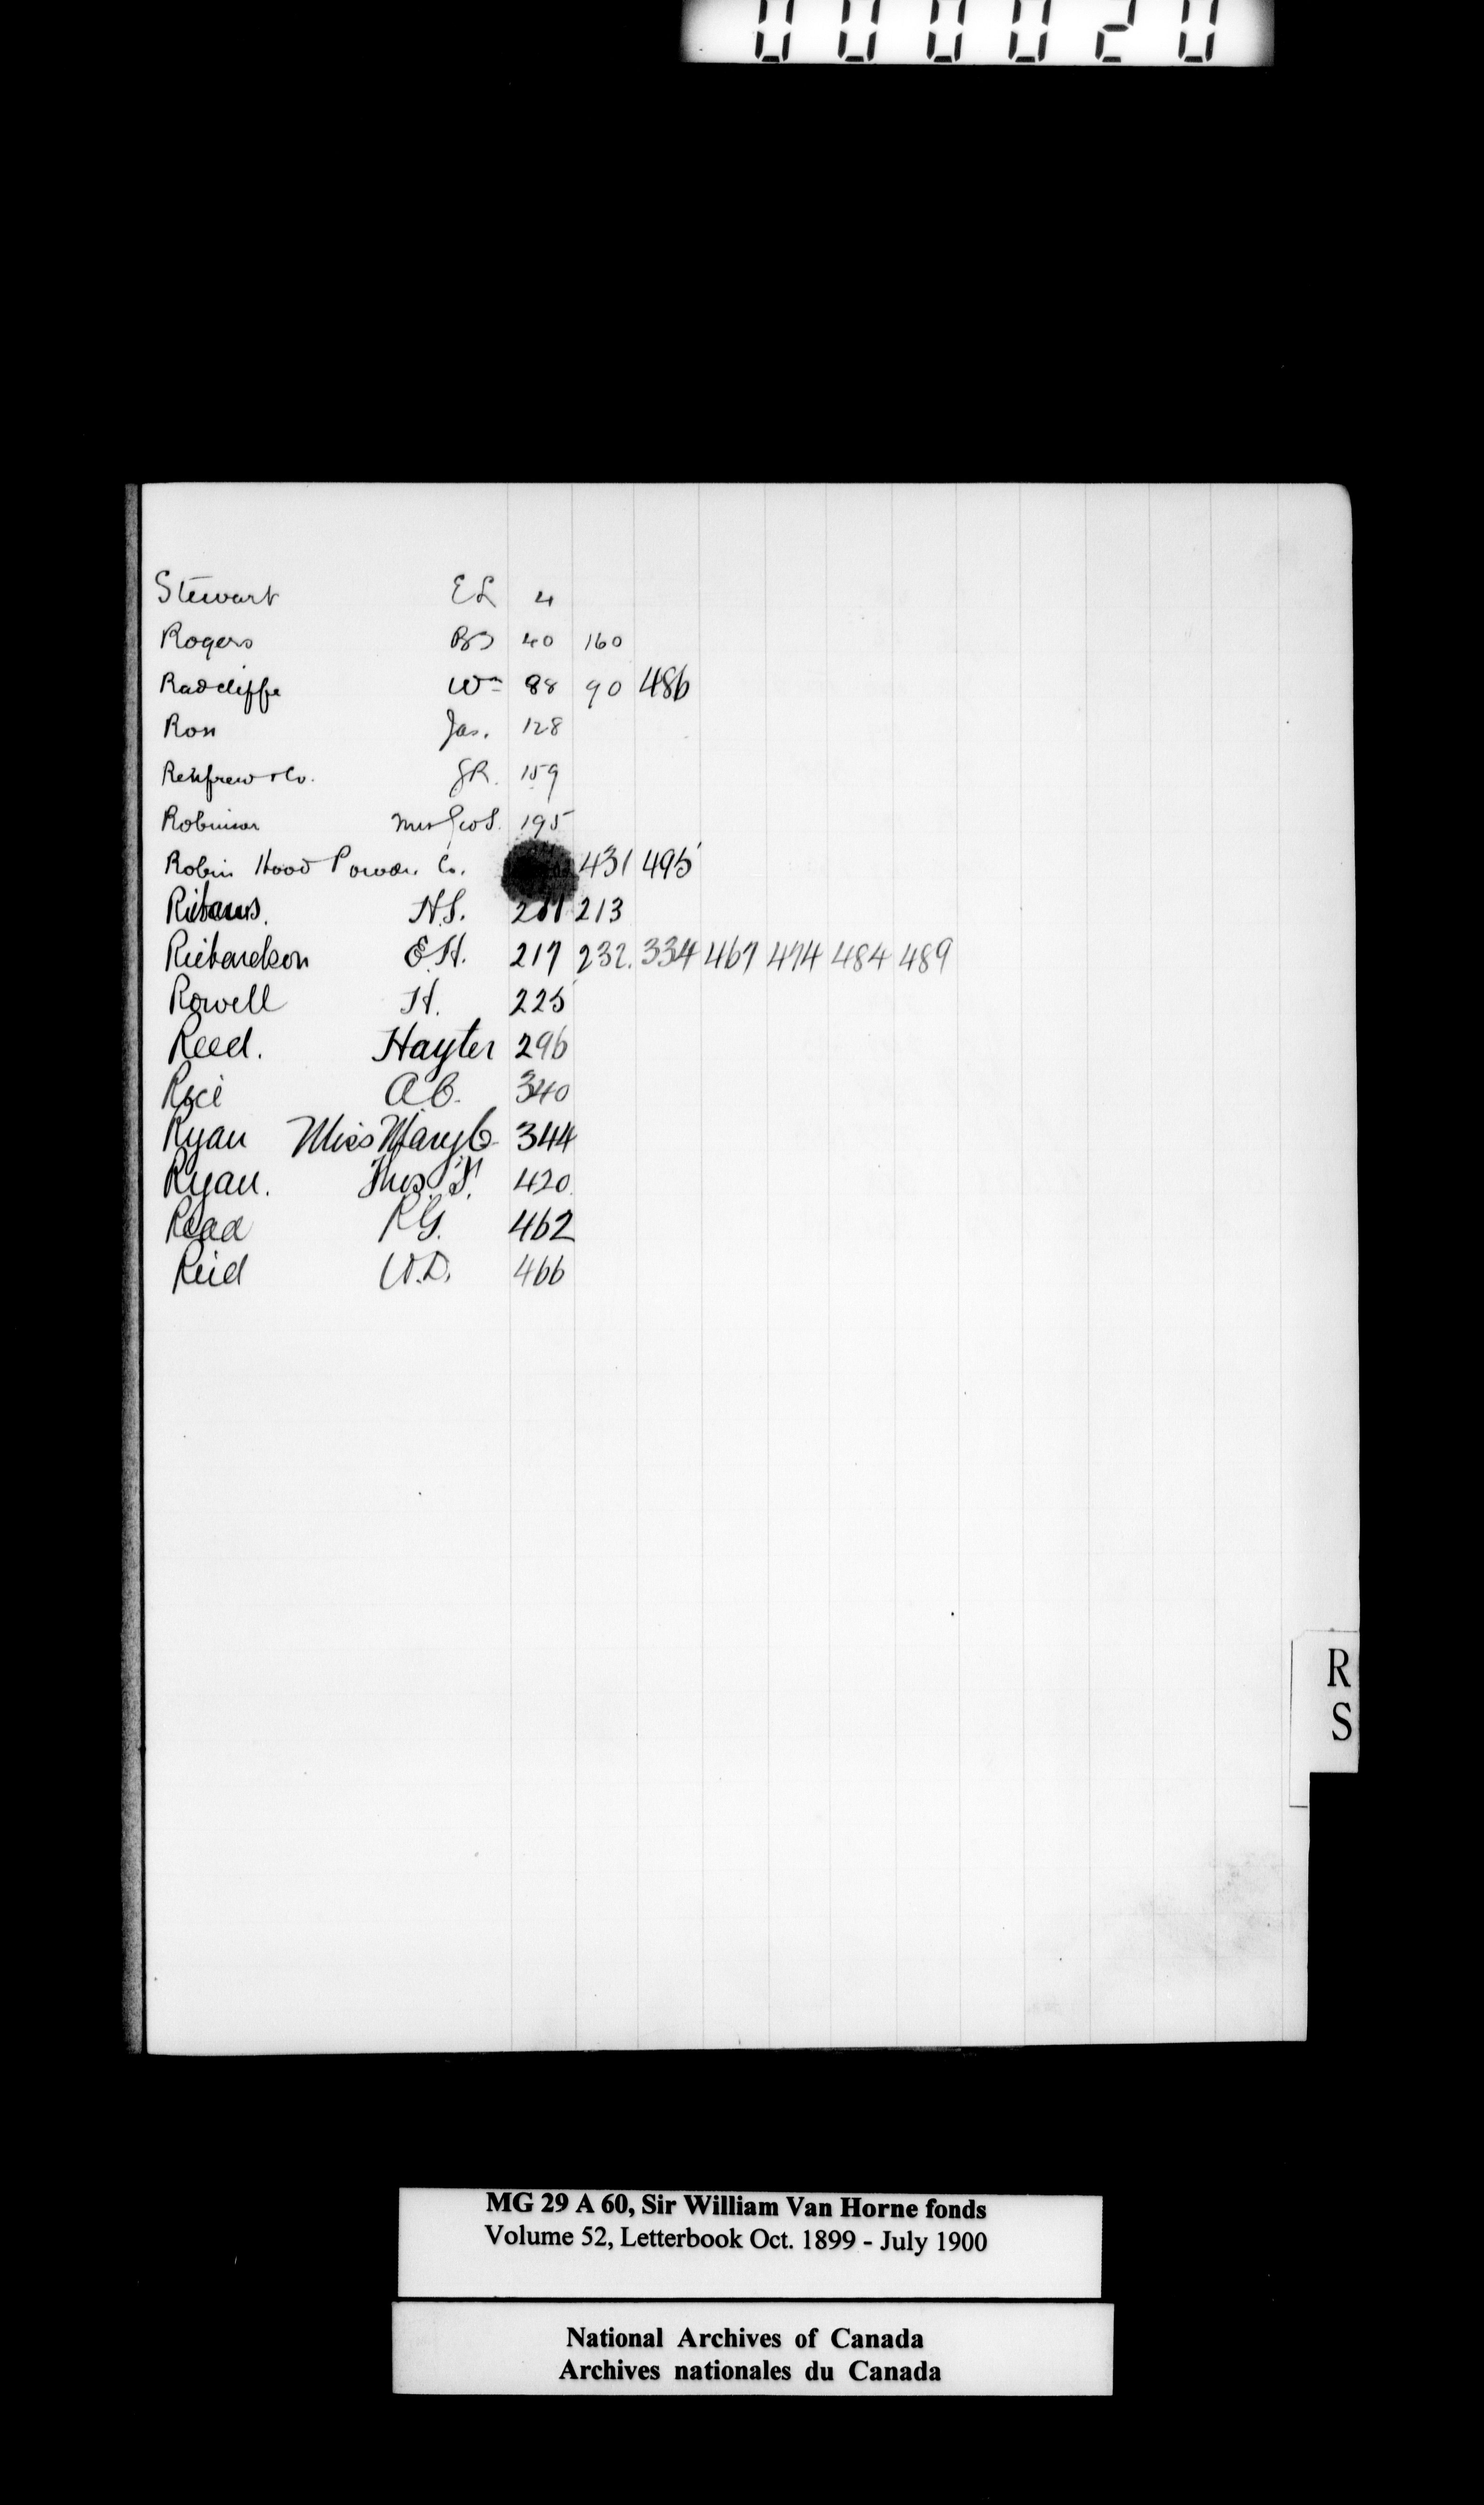 000020
Stewart E L 4
Rogers 40 160
Radcliffe Wm 88 90 486
Ross Jas. 128
Renfrew & Co. G R. 159
Robinson Mrs Geo S. 195
Robin Hood Powder Co. 431 495
H.S. 213
Richardson E.H. 217 232. 334 467 474 484 489
Rowell H. 225
Reed. Hayter 296
Rice A.C. 340
Ryan Miss Mary C. 344
Ryan. Thos. F. 420
Read R G. 462
Reid W.D. 466
R
S
MG 29 A 60, Sir William Van Horne fonds
Volume 52, Letterbook Oct. 1899 - July 1900
National Archives of Canada
Archives nationales du Canada